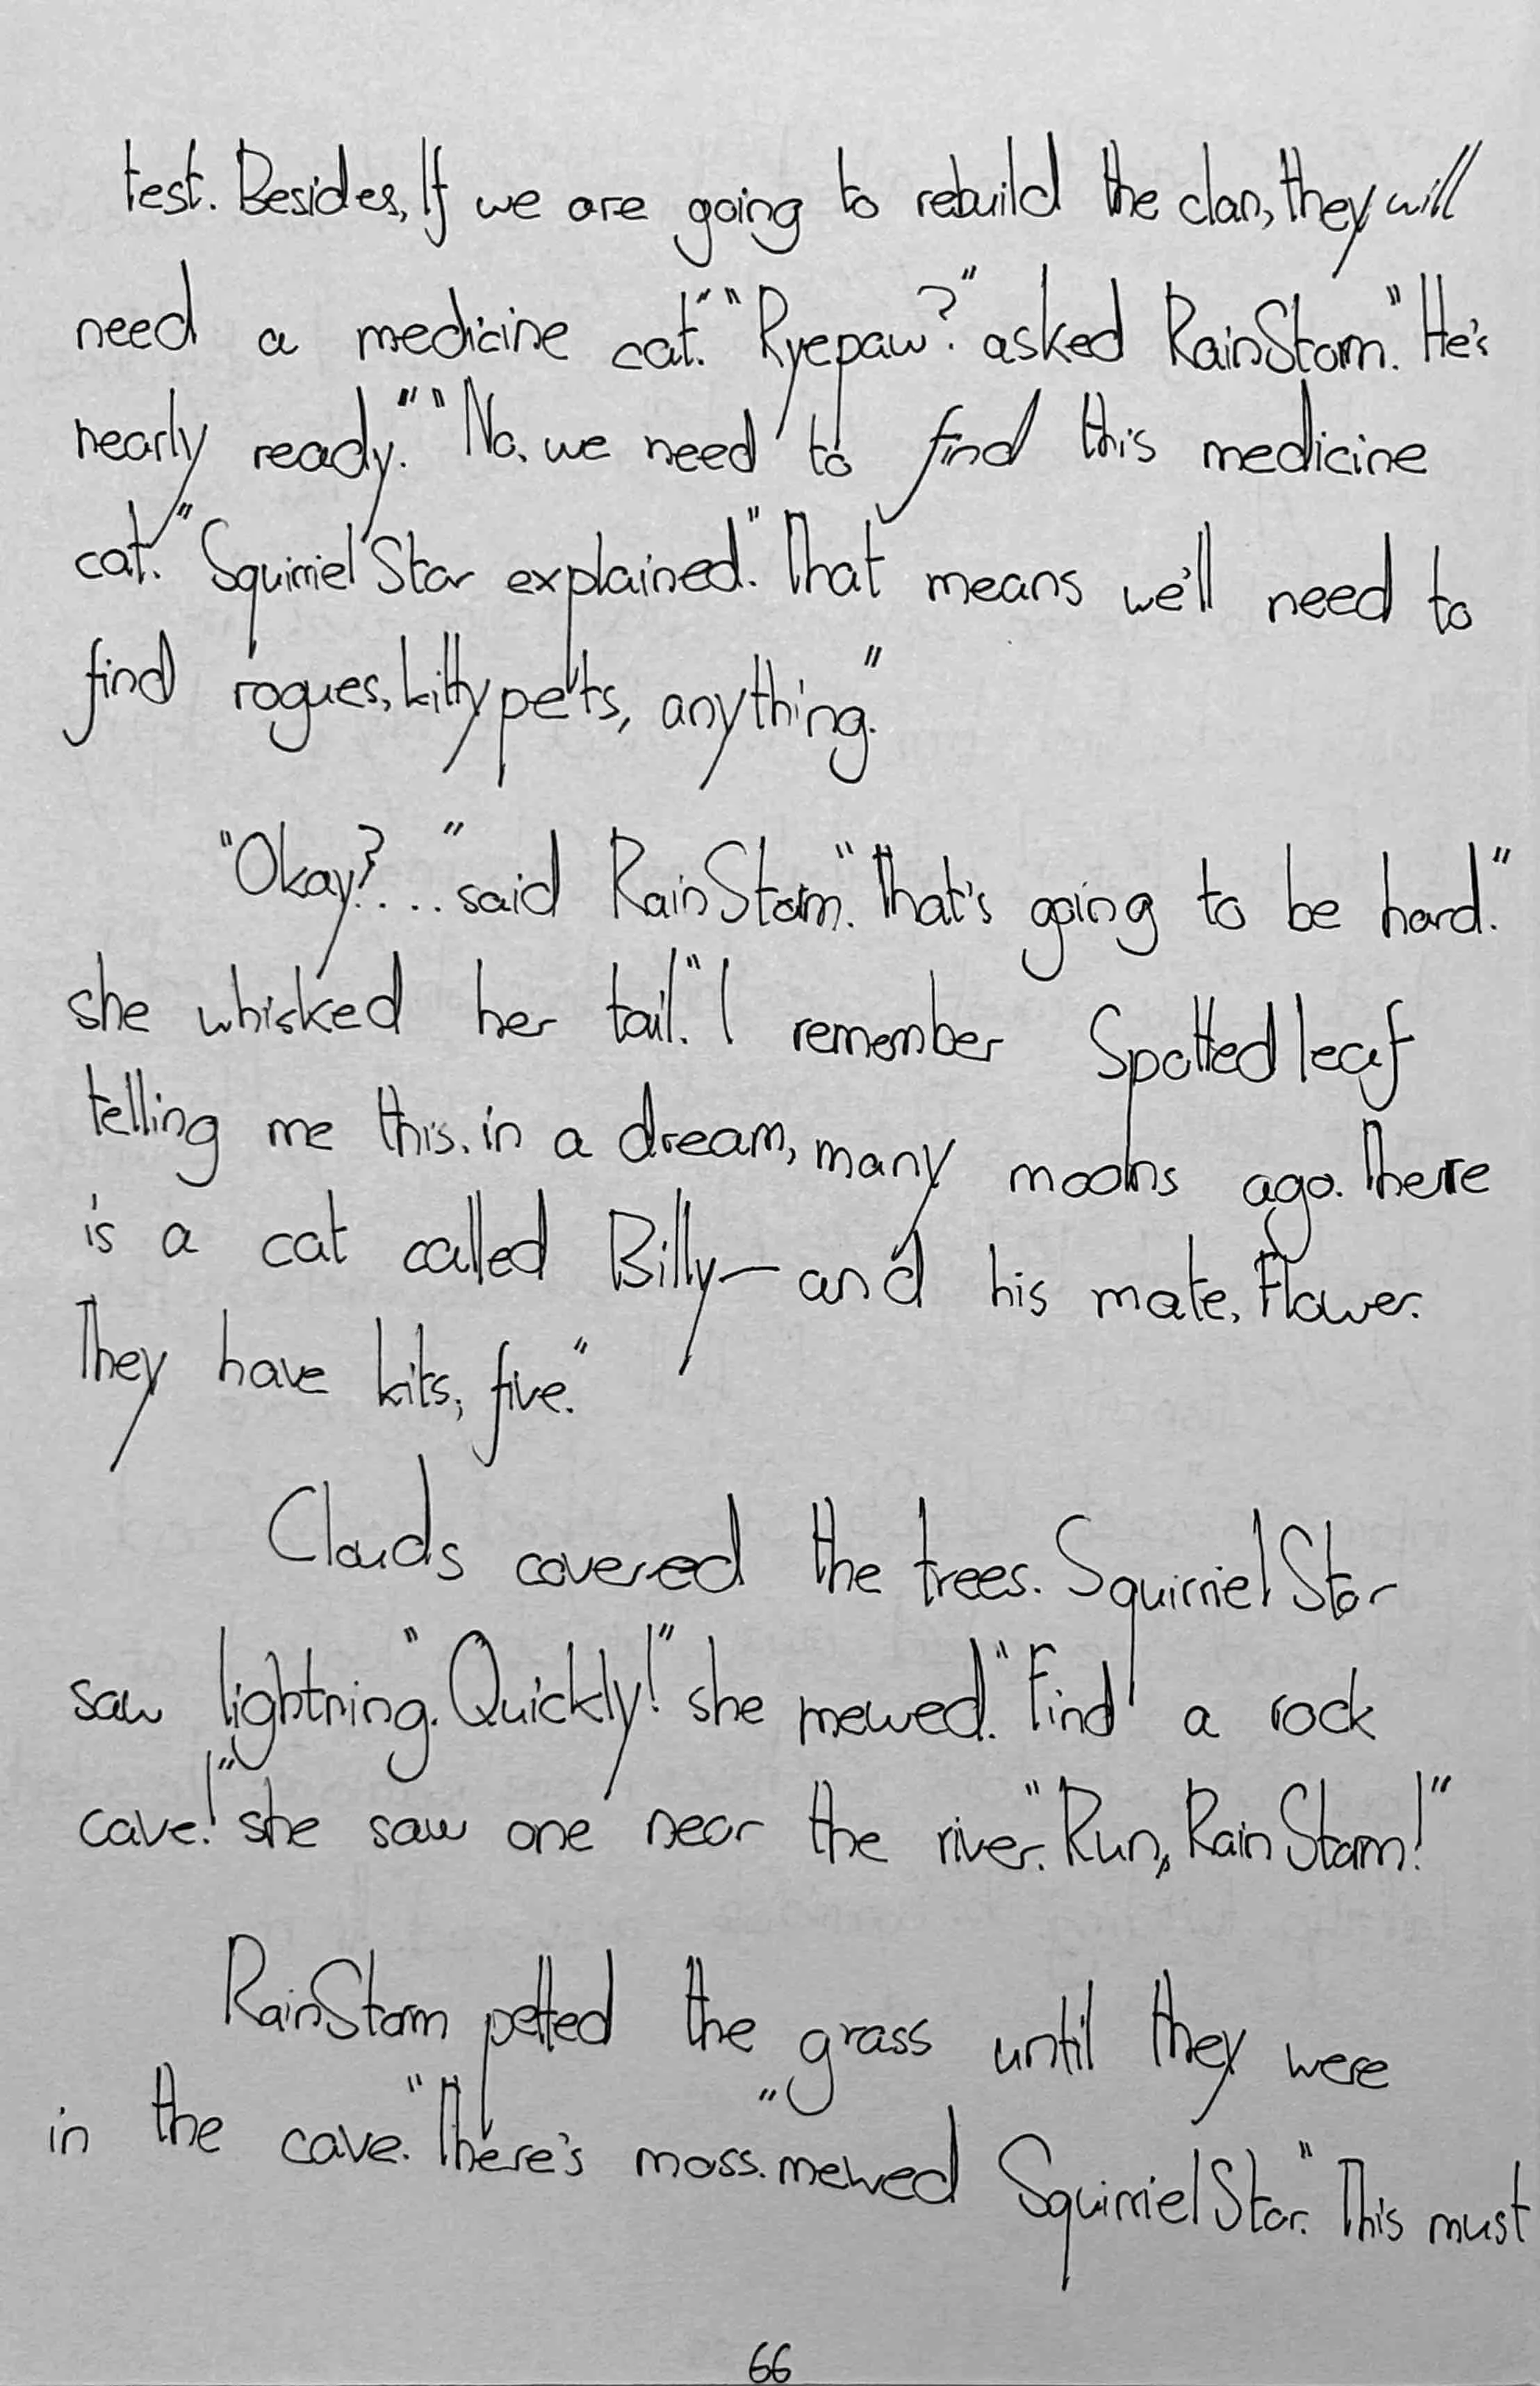 test. Besides, If we are going to rebuild the clan, they will
need a medicine cat." "Ryepaw?" asked RainStorm. "He's
nearly ready." "No, we need to find this medicine
cat." Squirriel Star explained. "That means we'll need to
find rogues, kittypets, anything."
"Okay?...." said RainStorm. "That's going to be hard."
she whisked her tail. "I remember Spotted leaf
telling me this. in a dream, many moons ago. There
is a cat called Billy — and his mate, Flower.
They have kits; five."
Clouds covered the trees. Squirriel Star
saw lightning. "Quickly!" she mewed. "Find a rock
cave!" she saw one near the river. "Run, RainStorm!"
RainStorm petted the grass until they were
in the cave. "There's moss." mewed SquirrielStar. "This must
66